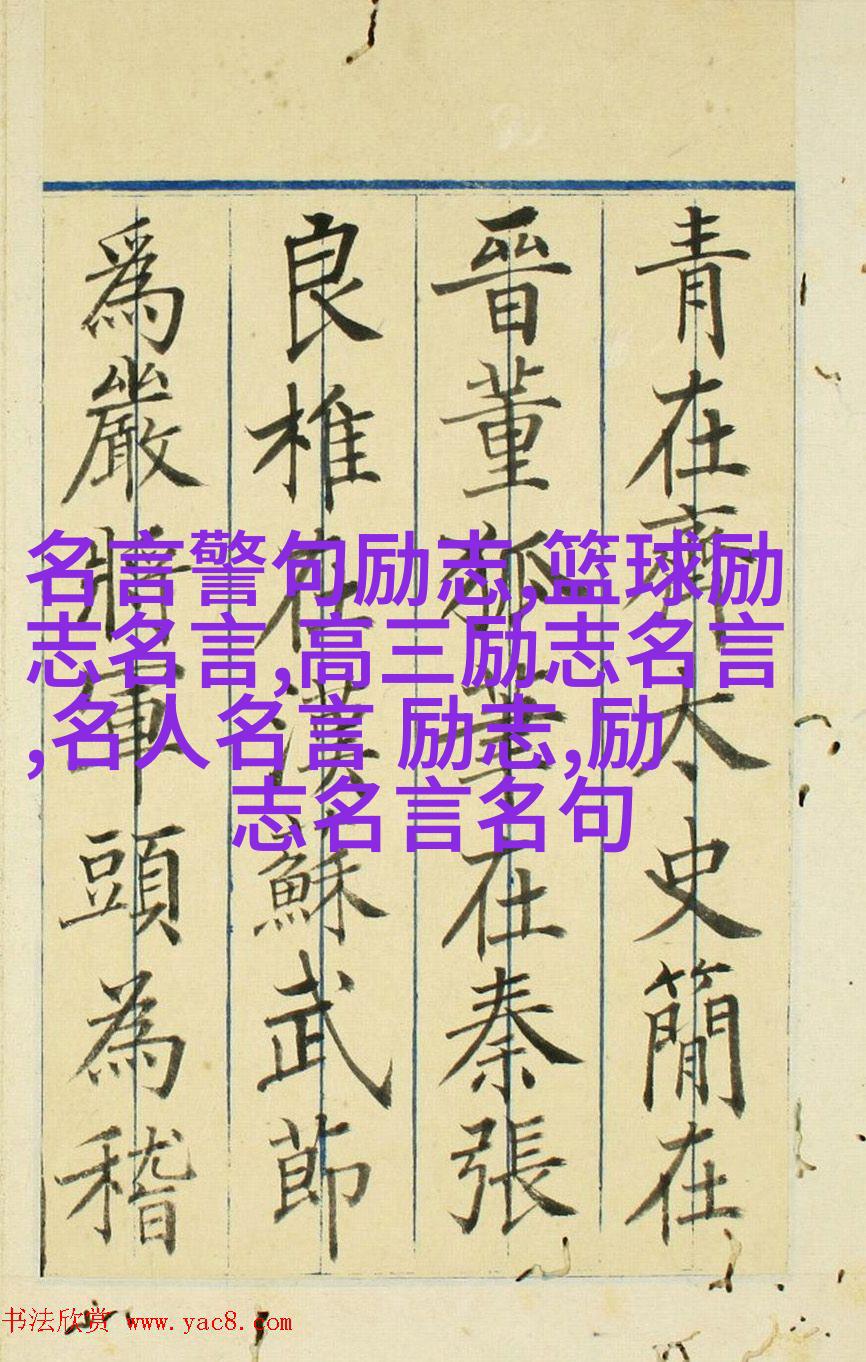 青在齊太史簡在
晉董狐筆在秦張
良椎在漢蘇武節
爲嚴將軍頭為稽
名言警句励志,篮球励
志名言,高三励志名言
,名人名言 励志,励
志名言名句
书法欣赏 www.yac8.com